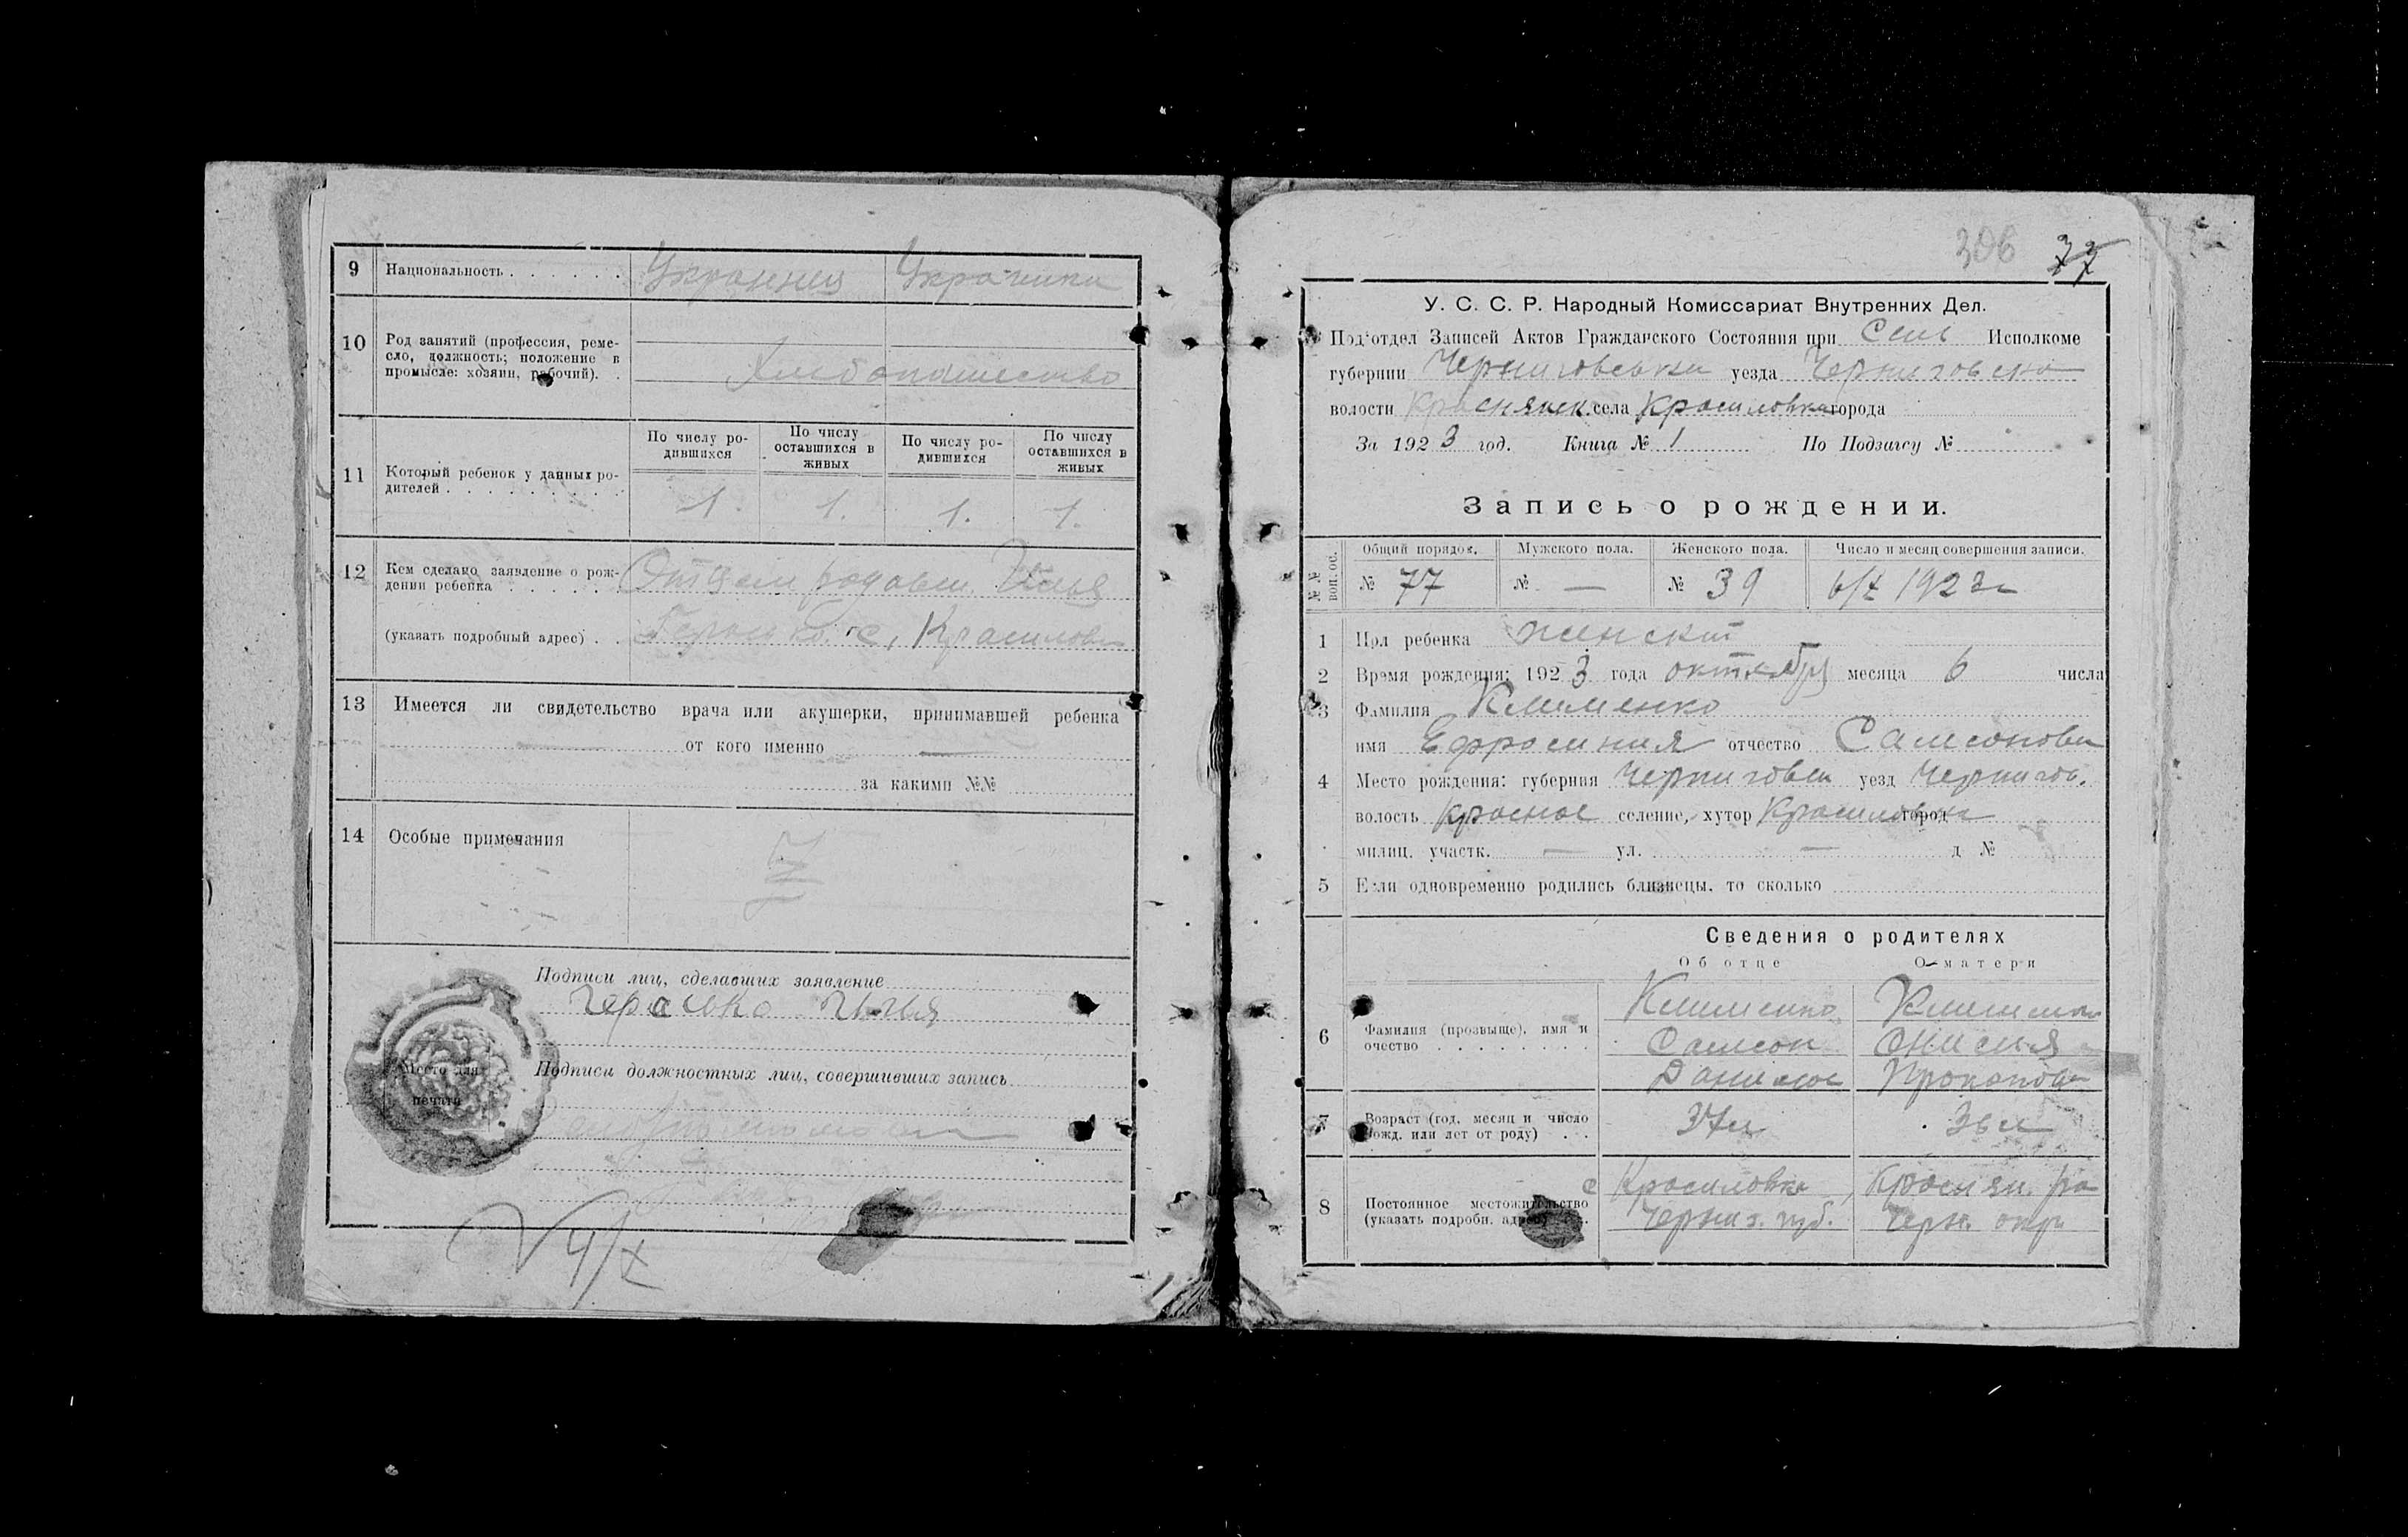 9 Национальность . . . . . . Украинец Украинка
10 Род занятий (профессия, реме-
сло, должность; положение в
промысле: хозяин, рабочий). .
Хлебопашество
11 Который ребенок у данных ро-
дителей . . . . . . . . .
По числу ро-
дившихся
По числу
оставшихся в
живых
По числу ро-
дившихся
По числу
оставшихся в
живых
1. 1. 1. 1.
12 Кем сделано заявление о рож-
дении ребенка . . . . . Отцем Илья
(указать подробный адрес) . . с. Красиловка
13 Имеется ли свидетельство врача или акушерки, принимавшей ребенка
— от кого именно —
за какими №№
14 Особые примечания
Подписи лиц, сделавших заявление
Герасько Илья
Место для
печати
Подписи должностных лиц, совершивших запись
4/X
306 77
У. С. С. Р. Народный Комиссариат Внутренних Дел.
Под'отдел Записей Актов Гражданского Состояния при Сель Исполкоме
губернии Черниговськи уезда Черниговско
волости Краснянск. села Красиловка города
За 1923 год. Книга № 1 По Подзагсу №
Запись о рождении.
№№ воп. ос.
Общий порядок. Мужского пола. Женского пола. Число и месяц совершения записи.
№ 77 № — № 39 6/X 1923 г
1 Пол ребенка женский
2 Время рождения: 1923 года октября месяца 6 числа
3 Фамилия Клименко
имя Ефросиния отчество Самсоновн
4 Место рождения: губерния Черниговск уезд Чернигов.
волость Красное селение, хутор Красиловка город
милиц. участк. — ул. — д №
5 Если одновременно родились близнецы, то сколько
Сведения о родителях
Об отце О матери
6 Фамилия (прозвыще), имя и
очество . . . . . . . .
Клименко Клименко
Самсон Онисия
Данилов Прокопов
7 Возраст (год, месяц и число
рожд. или лет от роду) . . .
37 л 36 л
8 Постоянное местожительство
(указать подробн. адрес) . .
с Красиловка, Краснян. ра
Черниг. губ. Черн. окр.